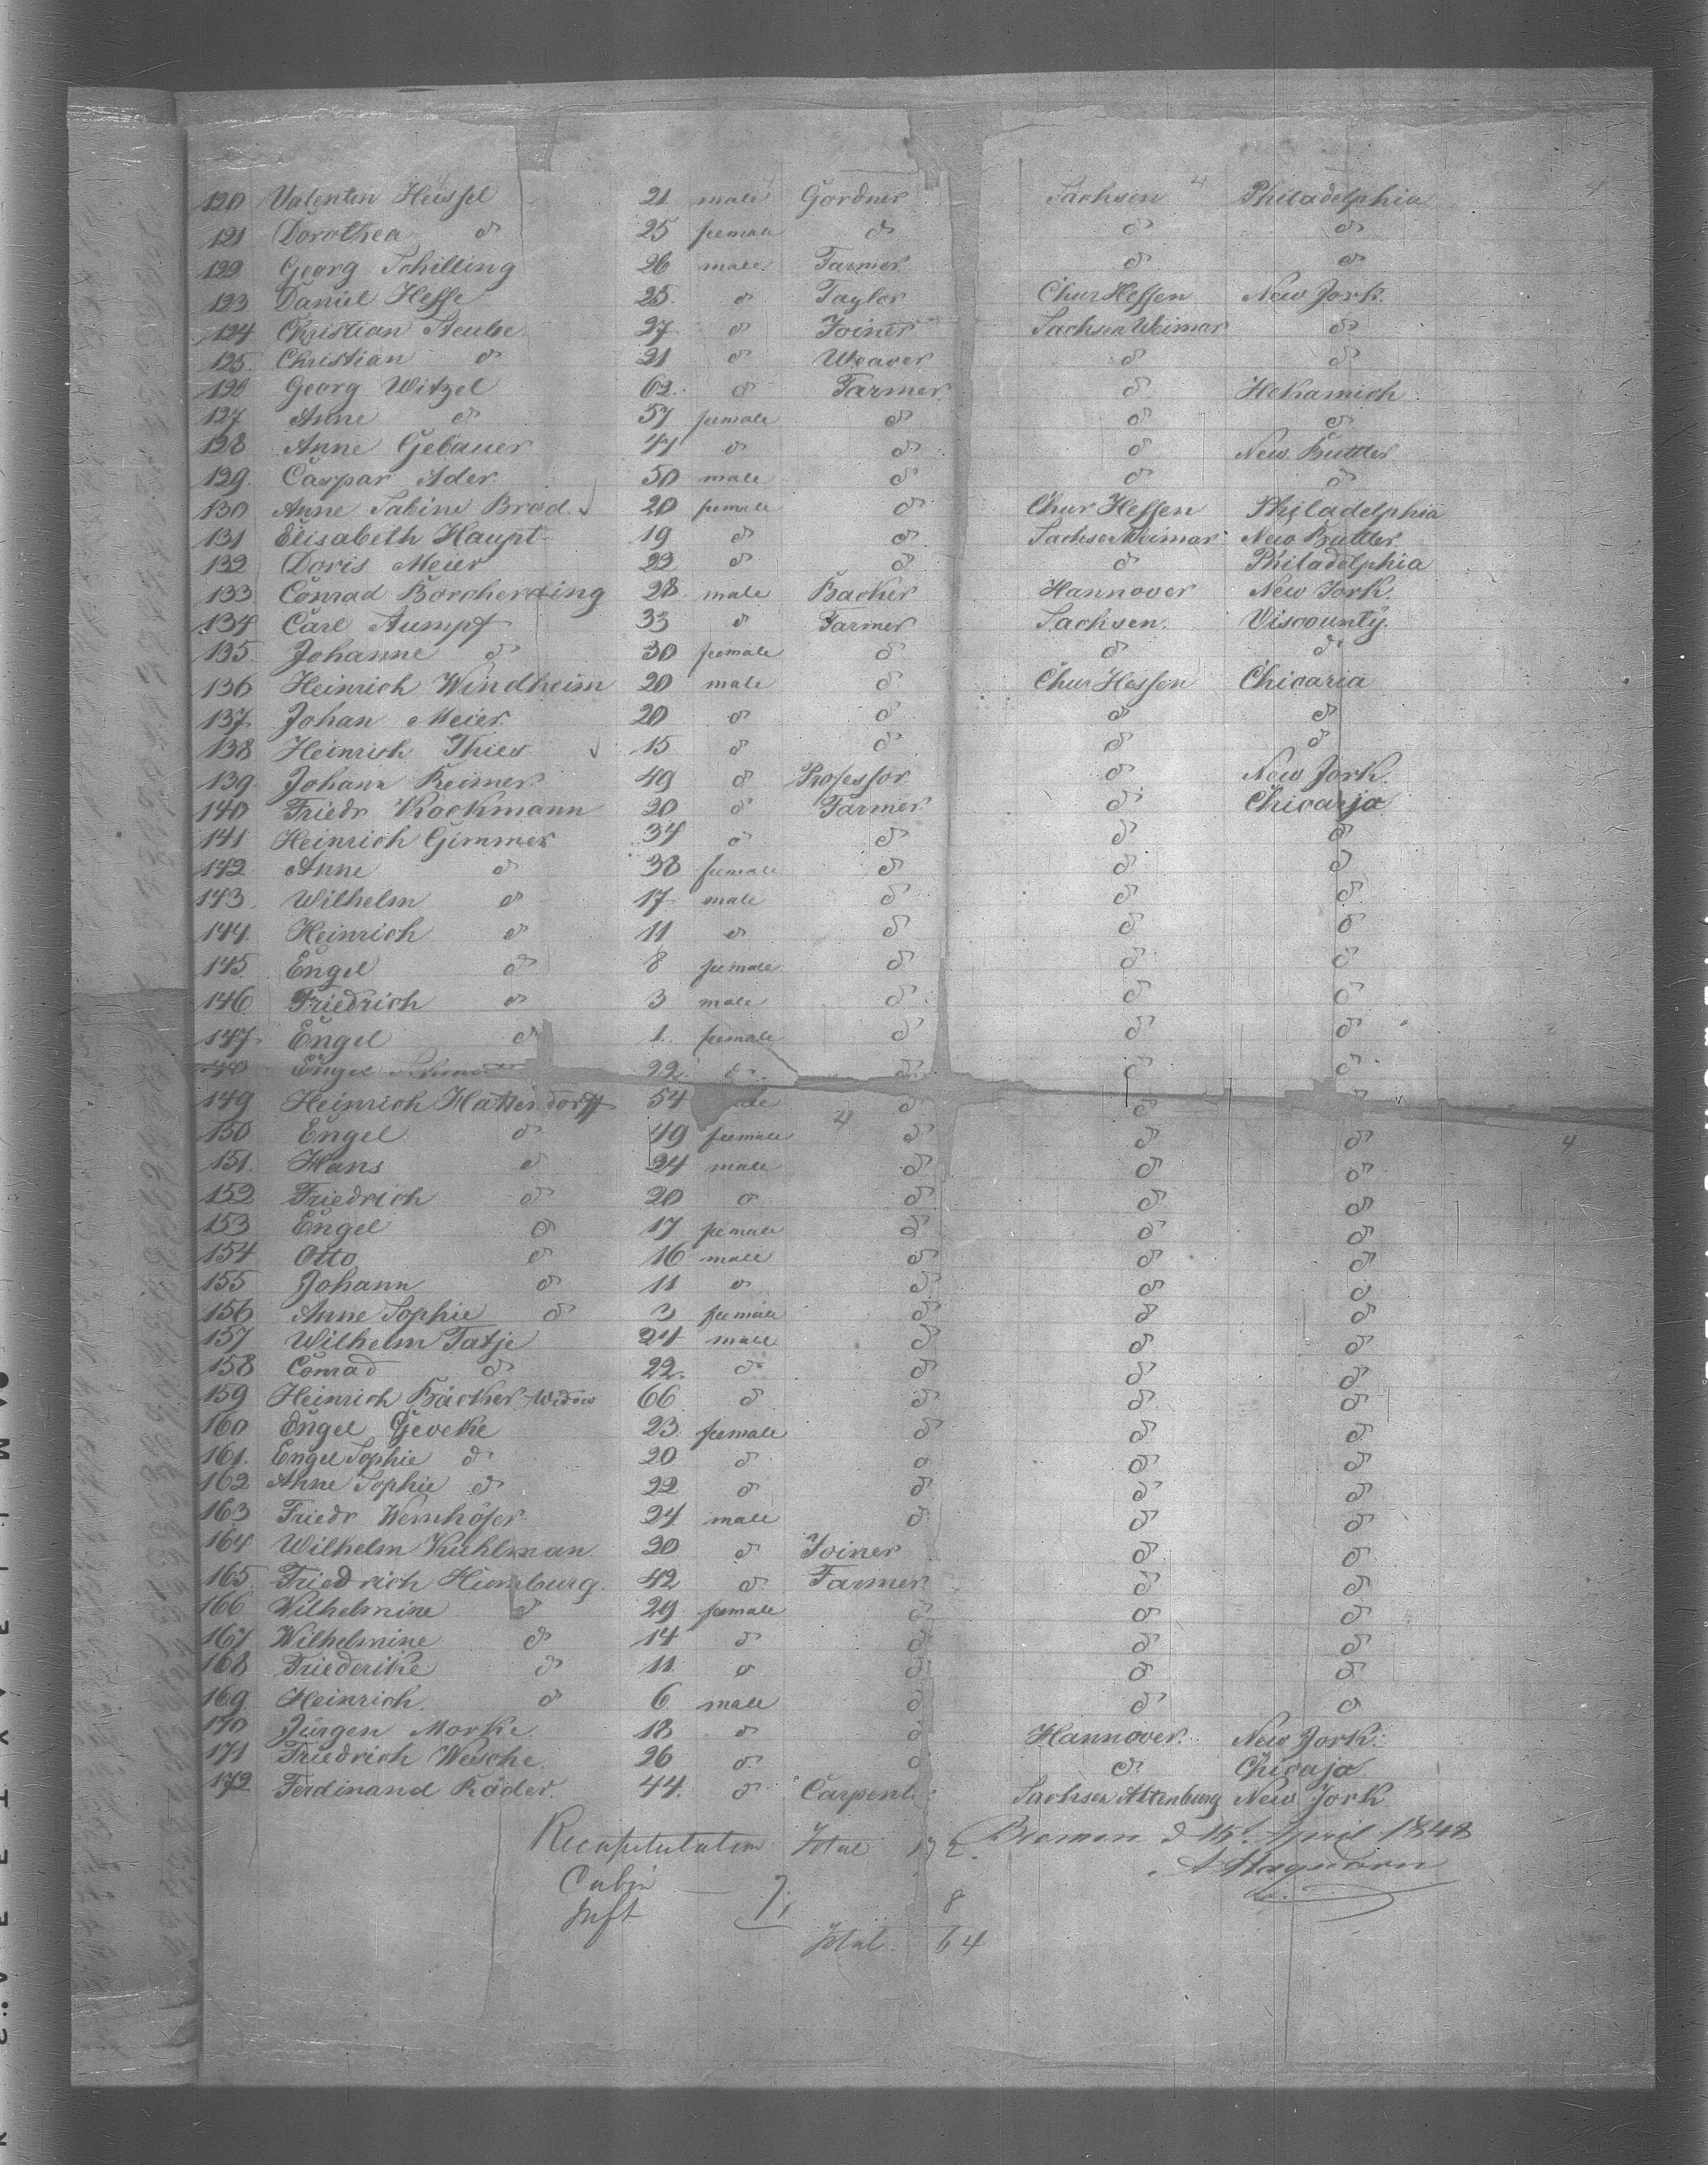 120 Valentin Heissel 21 male Gardner Sachsen Philadelphia
121 Dorothea do 25 feemale do do do
122 Georg Schilling 26 male Farmer do do
123 Daniel Hesse 25 do Taylor Chur Hessen New York
124 Christian Steube 27 do Joiner Sachsen Weimar do
125 Christian do 21 do Weaver do do
126 Georg Witzel 62 do Farmer do Hekamich
127 Anne do 57 feemale do do do
128 Anne Gebauer 47 do do do New Buttler
129 Caspar Ader 50 male do do do
130 Anne Sabine Brod 20 feemale do Chur Hessen Philadelphia
131 Elisabeth Haupt 19 do do Sachsen Weimar New Buttler
132 Doris Meier 22 do do do Philadelphia
133 Conrad Borcherding 28 male Backer Hannover New York
134 Carl Aumpf 33 do Farmer Sachsen Viscounty
135 Johanne do 30 feemale do do do
136 Heinrich Windheim 20 male do Chur Hessen Chicaria
137 Johan Meier 20 do do do do
138 Heinrich Thies 15 do do do do
139 Johann Reimer 49 do Professor do New York
140 Friedr Kockmann 20 do Farmer do Chicarja
141 Heinrich Gimmer 34 do do do do
142 Anne do 38 feemale do do do
143 Wilhelm do 17 male do do do
144 Heinrich do 11 do do do do
145 Engel do 8 feemale do do do
146 Friedrich do 3 male do do do
147 Engel do 1 feemale do do do
Engel 22 do do do do
149 Heinrich Hattendorff 54 do do do
150 Engel do 49 feemale do do do
151 Hans do 24 male do do do
152 Friedrich do 20 do do do do
153 Engel do 17 feemale do do do
154 Otto do 16 male do do do
155 Johann do 11 do do do do
156 Anne Sophie do 3 feemale do do do
157 Wilhelm Tatje 24 male do do do
158 Conrad do 22 do do do do
159 Heinrich Bräcker Widow 66 do do do do
160 Engel Geveke 23 feemale do do do
161 Engel Sophie do 20 do do do do
162 Anne Sophie do 22 do do do do
163 Friedr Wernhöfer 24 male do do do
164 Wilhelm Kuhlman 20 do Joiner do do
165 Friedrich Homburg 42 do Farmer do do
166 Wilhelmine do 29 feemale do do do
167 Wilhelmine do 14 do do do do
168 Friederike do 11 do do do do
169 Heinrich do 6 male do do do
170 Jürgen Morke 18 do do Hannover New York
171 Friedrich Wesche 26 do do do Chicaja
172 Ferdinand Röder 44 do Carpent Sachsen Altenburg New York
Recapitulation Total 172 Bremen d 15 April 1848
Cabin
8
Total 64